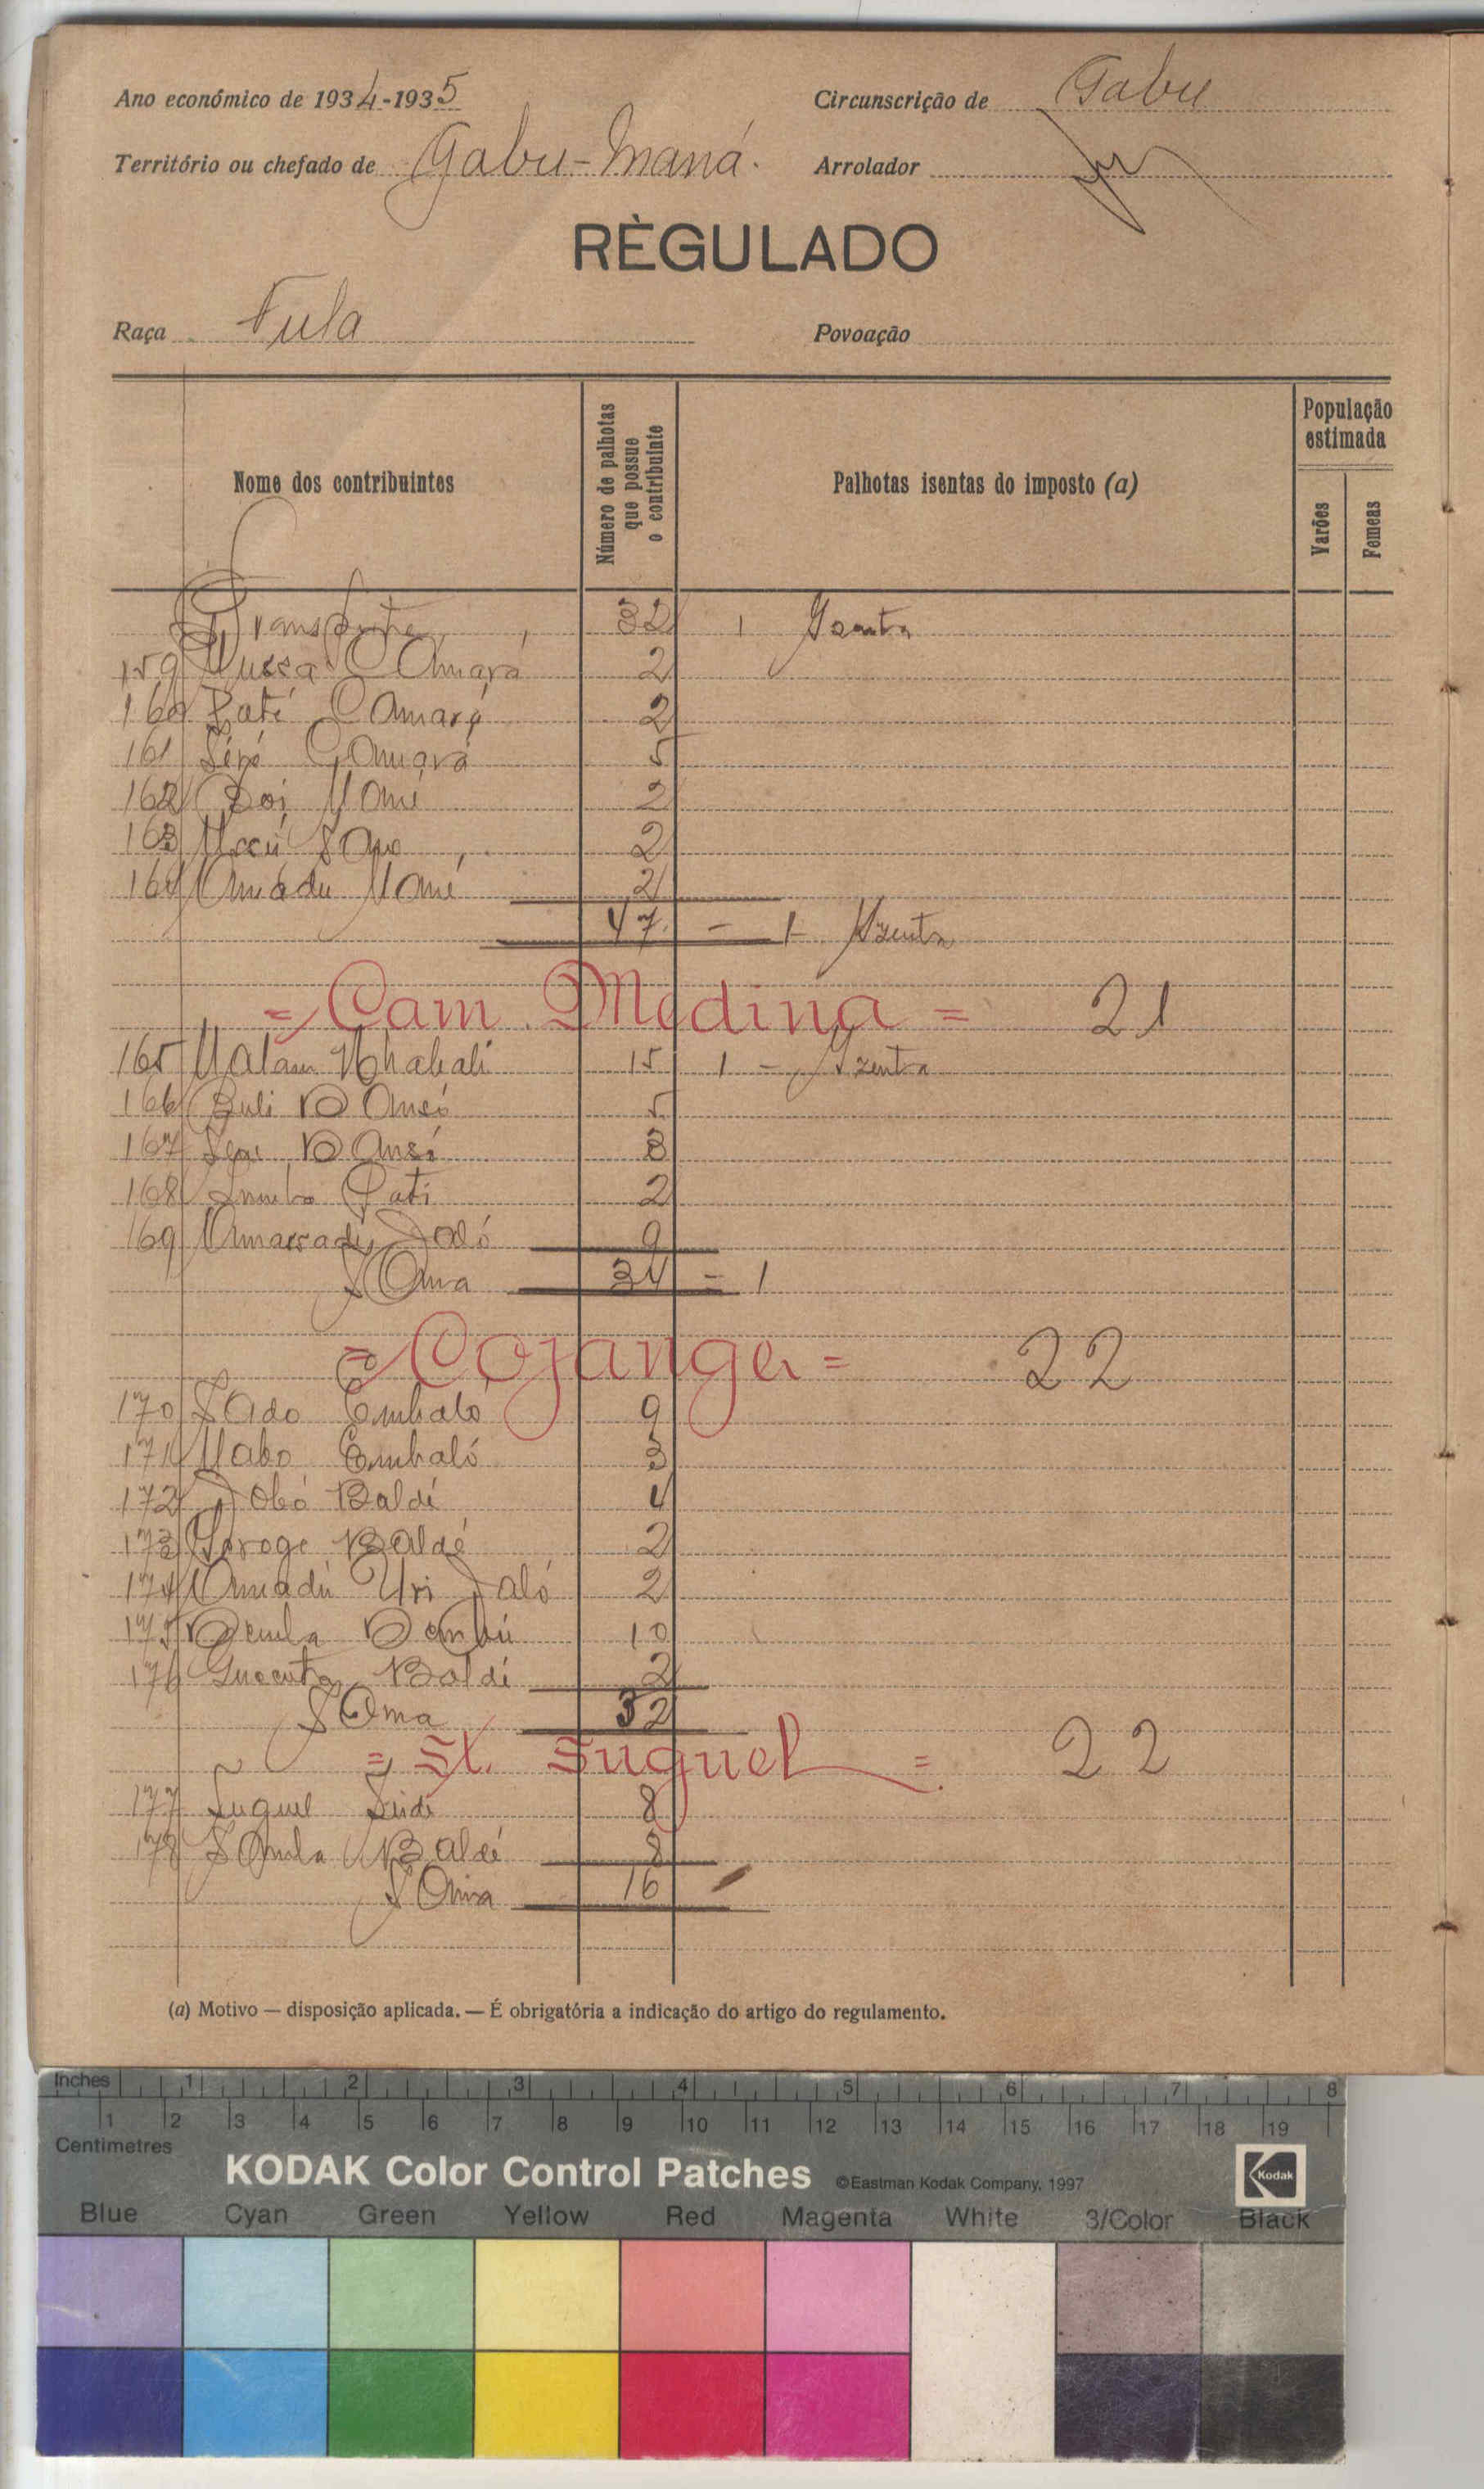 Ano económico de 1934-1935
Circunscrição de Gabu
Território ou chefado de Gabu-Maná.
Arrolador
RÈGULADO
Raça Fula
Povoação
Nome dos contribuintes
Número de palhotas que possue o contribuinte
Palhotas isentas do imposto (a)
População estimada
Varões
Femeas
Transporte 32 1 Izenta
159 Mussá Camará 2
160 Paté Camará 2
161 Camará 5
162 Mané 2
163 2
164 Amadu Mané 2
47 - 1 Izenta
= Cam Medina = 21
165 Malam 15 1 - Izenta
166 Dansó 5
167 Dansó 3
168 Pati 2
169 Jaló 9
Soma 34 = 1
= Cojangei = 22
170 Sado Embaló 9
171 Embaló 3
172 Baldé 4
173 Baldé 2
174 Amadú Uri Jaló 2
175 Demba 10
176 Baldé 2
Soma 32
= St. Suguel = 22
177 Suguel Seidi 8
178 Samba Baldé 8
Soma 16
(a) Motivo — disposição aplicada. — É obrigatória a indicação do artigo do regulamento.
Inches 1 2 3 4 5 6 7 8
1 2 3 4 5 6 7 8 9 10 11 12 13 14 15 16 17 18 19
Centimetres
KODAK Color Control Patches ©Eastman Kodak Company, 1997 Kodak
Blue Cyan Green Yellow Red Magenta White 3/Color Black